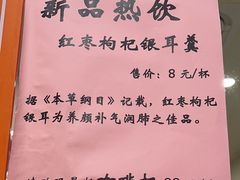 新品热饮
红枣枸杞银耳羹
售价：8元/杯
据《本草纲目》记载，红枣枸杞
银耳为养颜补气润肺之佳品。